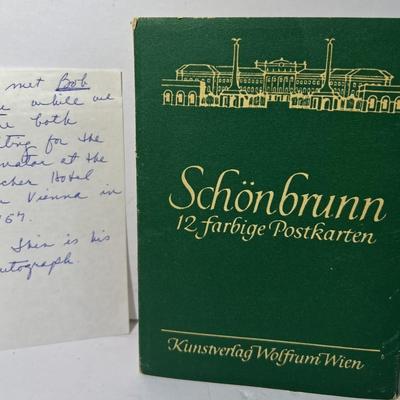 met Bob
while we
both
ting for the
nator at the
cher Hotel
Vienna in
This is his
utograph.
Schönbrunn
12 farbige Postkarten
Kunstverlag Wolfrum Wien